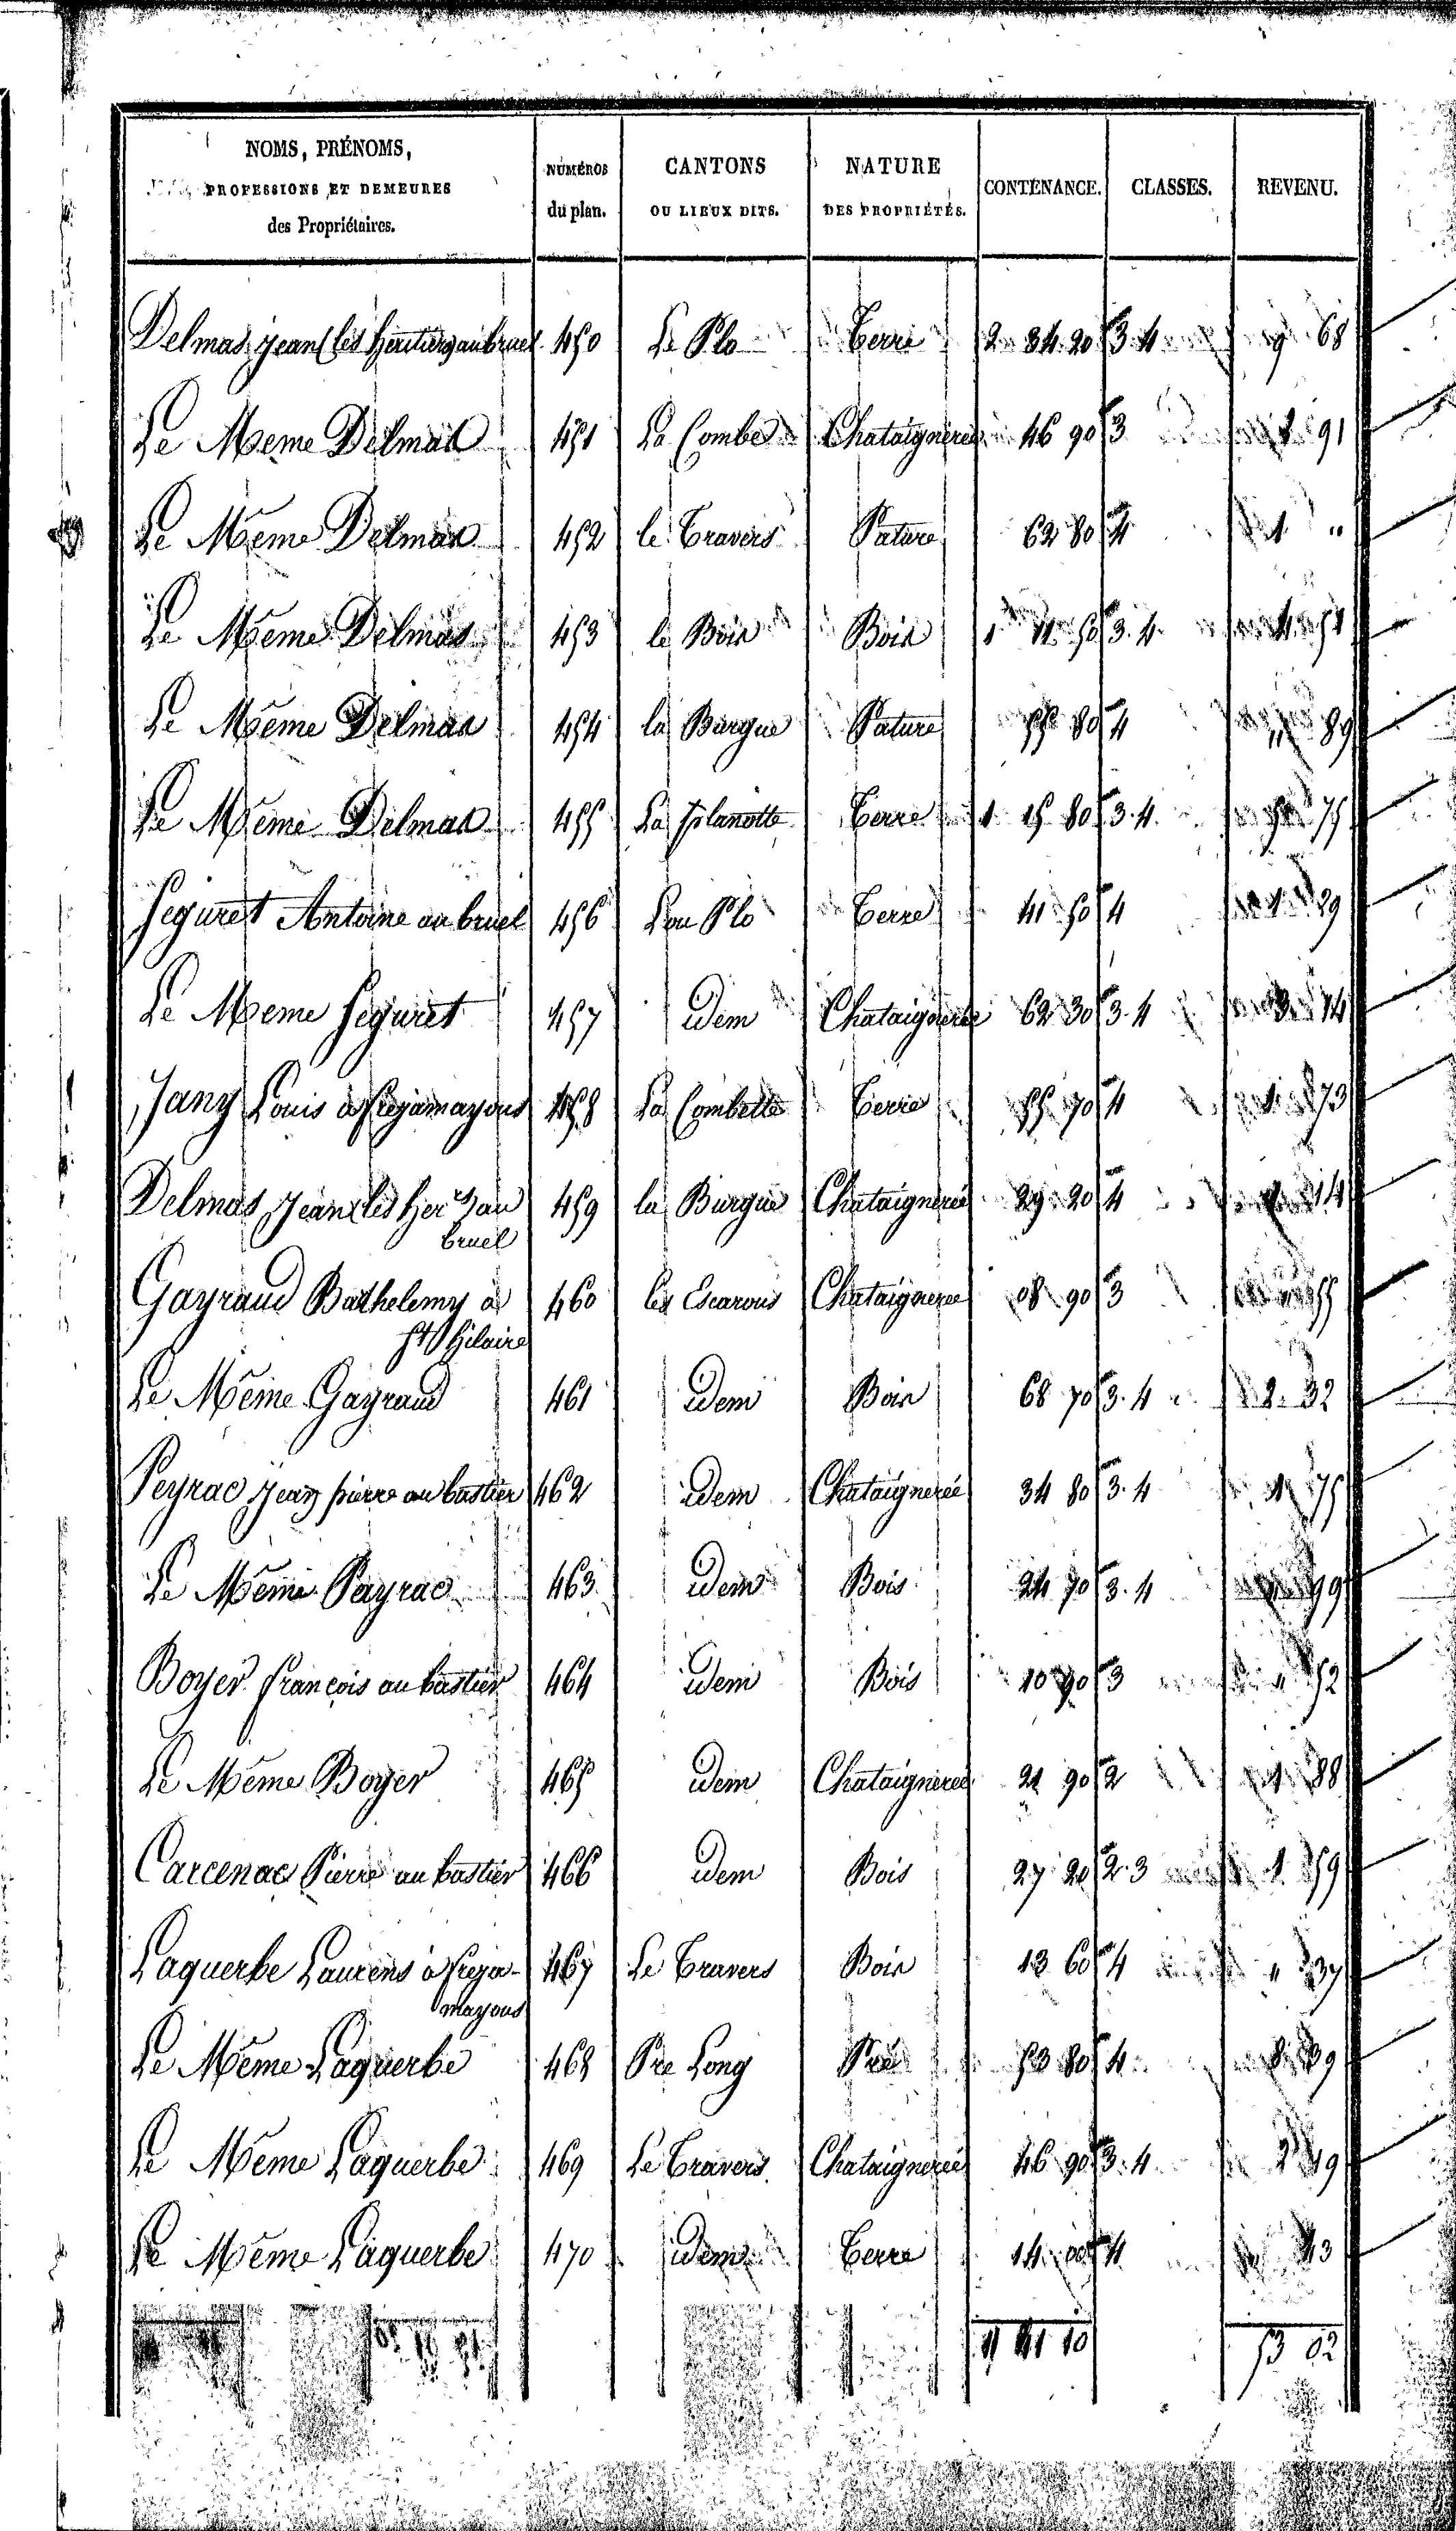 NOMS, PRÉNOMS, PROFESSIONS ET DEMEURES des Propriétaires. | NUMÉROS du plan. | CANTONS OU LIEUX DITS. | NATURE DES PROPRIÉTÉS. | CONTENANCE. | CLASSES. | REVENU.
Delmas jean (les heritiers au bruel 450 Le Plo Terre 2 34 20 3.4 9 68
Le Meme Delmas 451 La Combe Chataigneree 46 90 3 91
Le Même Delmas 452 le Travers Pature 62 80 4 1 "
Le Même Delmas 453 le Bois Bois 1 11 50 3.4 4 51
Le Même Delmas 454 la Burgue Pature 55 80 4 " 89
Le Même Delmas 455 La planotte Terre 1 15 80 3.4 75
Seguret Antoine au bruel 456 Lou Plo Terre 41 50 4 1 29
Le Meme Seguret 457 idem Chataigneree 62 30 3.4 3 14
Jany Louis à frejamayous 458 La Combette Terre 55 70 4 1 73
Delmas Jean (les her au bruel 459 la Burgue Chataigneree 29 20 4 14
Gayraud Bathelemy à St hilaire 460 les Escarous Chataigneree 08 90 3 55
Le Même Gayraud 461 idem Bois 68 70 3.4 2 32
Peyrac jean pierre au bastier 462 idem Chataigneree 34 80 3.4 1 75
Le Même Payrac 463 idem Bois 24 70 3.4 99
Boyer françois au bastier 464 idem Bois 10 90 3 " 52
Le Même Boyer 465 idem Chataigneree 21 90 2 1 88
Carcenac Pierre au bastier 466 idem Bois 27 20 2.3 1 59
Laquerbe Laurens à freja-mayous 467 Le Travers Bois 13 60 4 " 37
Le Même Laquerbe 468 Pre Long Pré 53 80 4 8 39
Le Même Laquerbe 469 Le Travers Chataigneree 46 90 3.4 2 19
Le Même Laquerbe 470 idem Terre 14 00 4 43
11 41 10 53 02